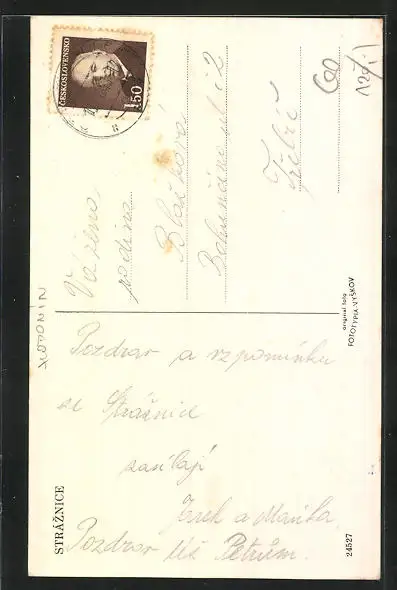 ČESKOSLOVENSKO
1.50
Vážená
rodina
Blažková
Bohunčino ul 12
Třebíč
HODONÍN
original foto
FOTOTYPIA-VYŠKOV
Pozdrav a vzpomínku
ze Strážnice
zasílají
Jarek a Mařka
Pozdrav též Petrům.
STRÁŽNICE
24527